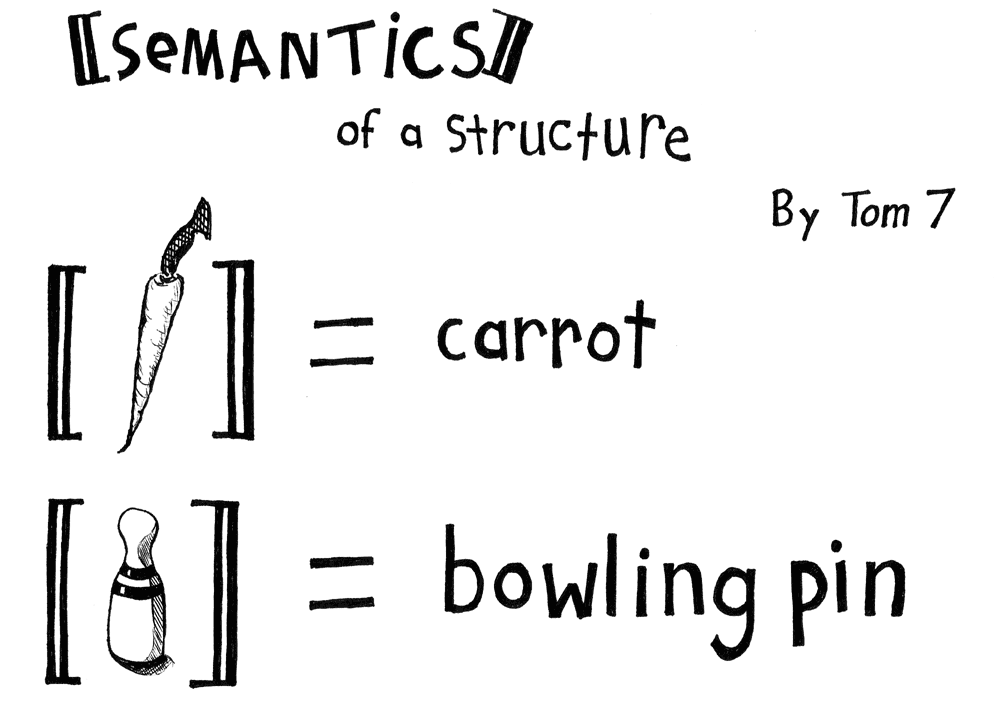 ⟦SeMANTiCS⟧
of a structure
By Tom 7
⟦ ⟧ = carrot
⟦ ⟧ = bowling pin